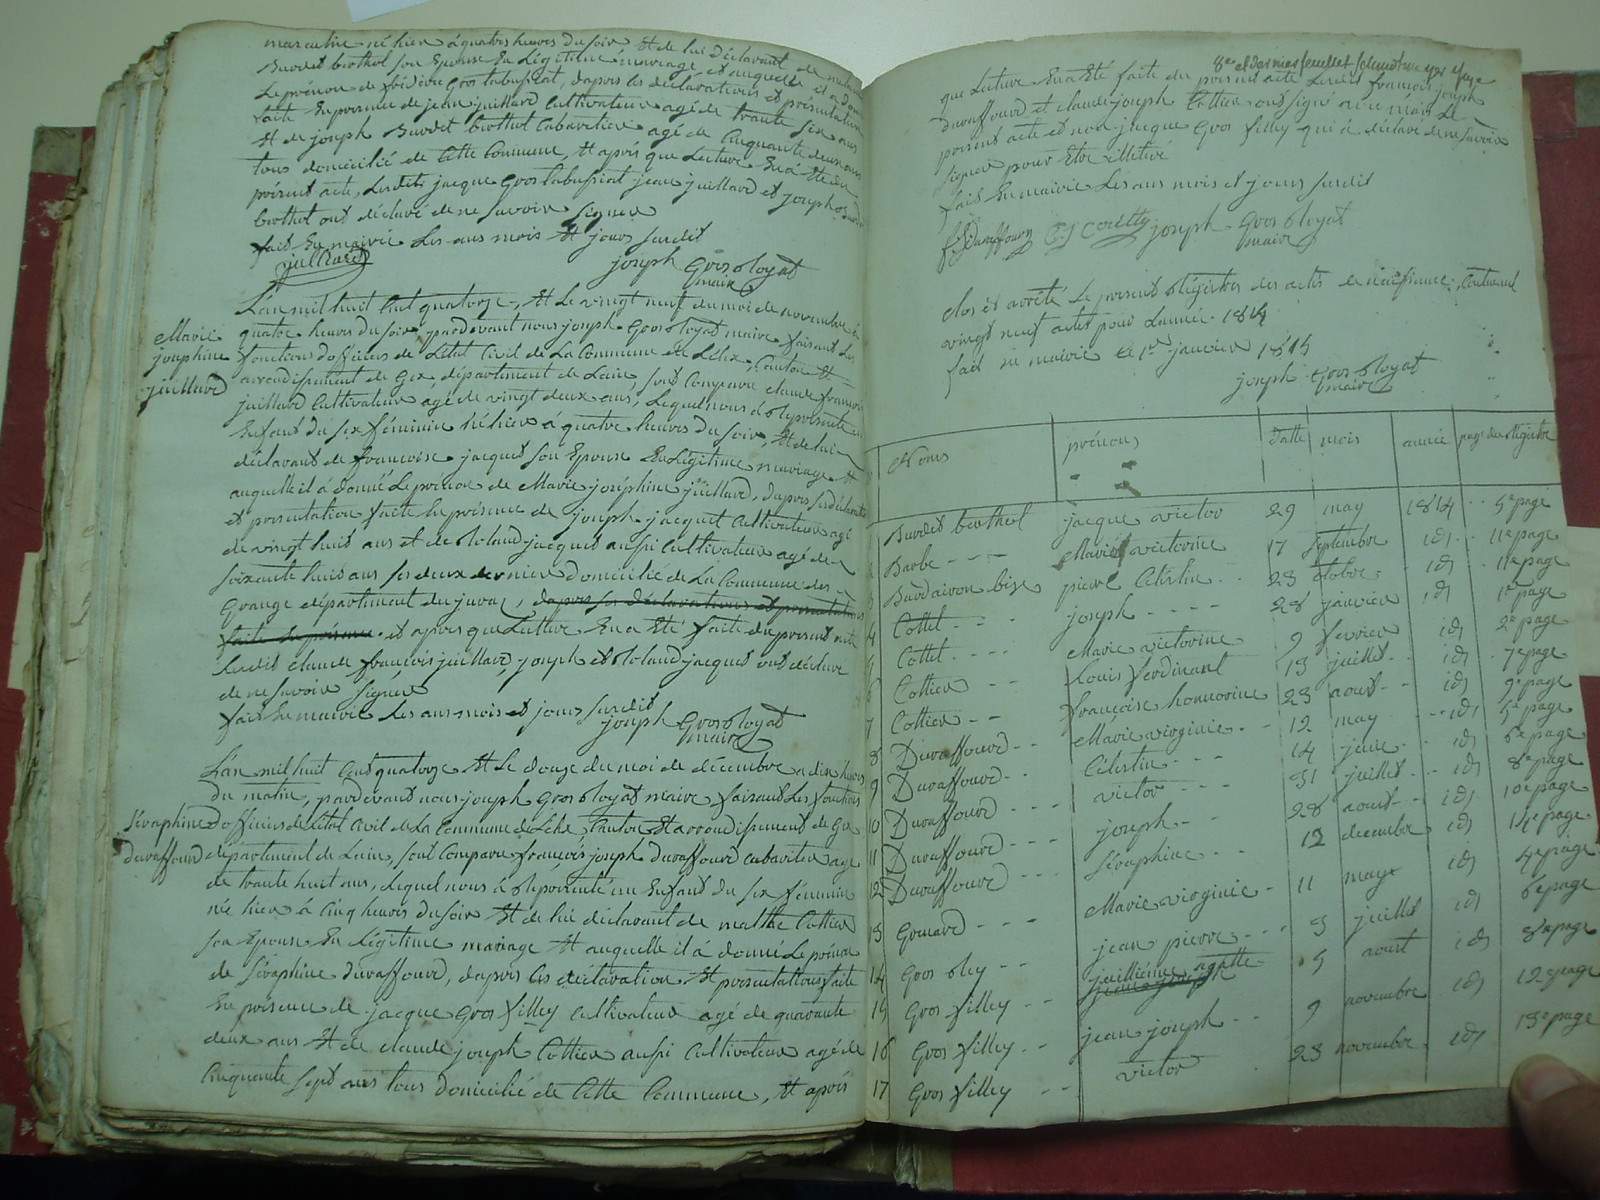 masculin né hier à quatres heures du soir et de lui déclarant de
Burdet berthot son Epouse En Légitime mariage et auquelle il a donné
Le prénom de frédéric Gros labussiat, dapres les déclarations et présentation
faite En présence de jean juillard Cultivateur agé de trante six ans
et de joseph Burdet berthot Cabaretier agé de Cinquante deux ans
tous domicilié de Cette Commune, et après que Lecture En a été du
présent acte, Lesdits jacque Gros labussiat jean juillard et joseph
berthot ont déclaré de ne savoir signer
fait En mairie Les ans mois et jours susdit
juillard joseph Gros Royat
maire
L'an mil huit Cent quatorze, et Le vingt neuf du mois de novembre à
quatre heures du soir, pardevant nous joseph Gros Royat maire faisant Les
fonctions d'officier de L'Etat Civil de La Commune de Lélex, Canton et
arrondissement de Gex, département de Lain, sont Comparu Claude françois
juillard Cultivateur agé de vingt deux ans, Lequel nous à représenté un
Enfant du sexe féminin né hier à quatre heures du soir, et de lui
déclarant de françoise jacquet son Epouse En Légitime mariage et
auquelle il à donné Le prénom de Marie joséphine juillard, dapres
et présentation faite En présence de joseph jacquet Cultivateur agé
de vingt huit ans et de Roland jacquet aussi Cultivateur agé de
soixante huit ans Les deux dernier domicilié de La Commune des
Grange département du jura, dapres les déclarations et présentation
faite En présence. et apres que Lecture En a Eté faite du présent acte
Lesdit Claude françois juillard, joseph et Roland jacquet ont déclaré
de ne savoir signer
fait En mairie Les ans mois et jours susdit
joseph Gros Royat
maire
Marie
joséphine
juillard
L'an mil huit Cent quatorze et Le douze du mois de décembre a dix heures
du matin, pardevant nous joseph Gros Royat maire faisant Les fonctions
d'officier de L'Etat Civil de La Commune de Lélex, Canton et arrondissement de Gex
département de Lain, sont Comparu françois joseph Duraffourd Cabaretier agé
de trante huit ans, Lequel nous à représenté un Enfant du sexe féminin
née hier à Cinq heures du soir et de lui déclarant de marthe Cottier
son Epouse En Légitime mariage et auquelle il à donné Le prénom
de Séraphine duraffourd, dapres Les déclaration et présentations faite
En présence de jacque Gros filley Cultivateur agé de quarante
deux ans et de claude joseph Cottier aussi Cultivateur agé de
Cinquante sept ans tous domicilié de Cette Commune, et après
Séraphine
duraffourd
8e et dernier feuillet
que Lecture En a Eté faite du présent acte Lesdit françois joseph
duraffourd et claude joseph Cottier ont signé avec nous Le
présent acte et non jacque Gros filley qui à déclaré de ne savoir
signer pour Etre illétiré
fait En mairie Les ans mois et jours susdit
f j Duraffourg C j Coutty joseph Gros Royat
maire
Clos et arrété Le présent Régistre des actes de naissance, Contenant
vingt neuf actes pour L'année 1814
fait en mairie le 1er janvier 1815
joseph Gros Royat
maire
Noms prénoms datte mois année page du Régistre
Burdet berthot jacque victor 29 may 1814 5e page
Barbe Marie victorine 17 septembre idj 11e page
Burdairon bize pierre Célestin 23 octobre idj 11e page
4 Cottet joseph 28 janvier idj 1e page
5 Cottet Marie victorine 9 fevrier idj 2e page
6 Cottier Louis ferdinant 13 juillet idj 7e page
7 Cottier françoise honnorine 23 aout idj 9e page
8 Duraffourd Marie virginie 12 may idj 5e page
9 Duraffourd Célestin 14 juin idj 6e page
10 Duraffourd victor 31 juillet idj 8e page
11 Duraffourd joseph 28 aout idj 10e page
12 Duraffourd Séraphine 12 decembre idj 14e page
13 Gonard Marie virginie 11 may idj 4e page
14 Gros Rey jean pierre 3 juillet idj 6e page
15 Gros filley juillienne agatte 5 aout idj 8e page
16 Gros filley jean joseph 9 novembre idj 12e page
17 Gros filley victor 23 novembre idj 13e page